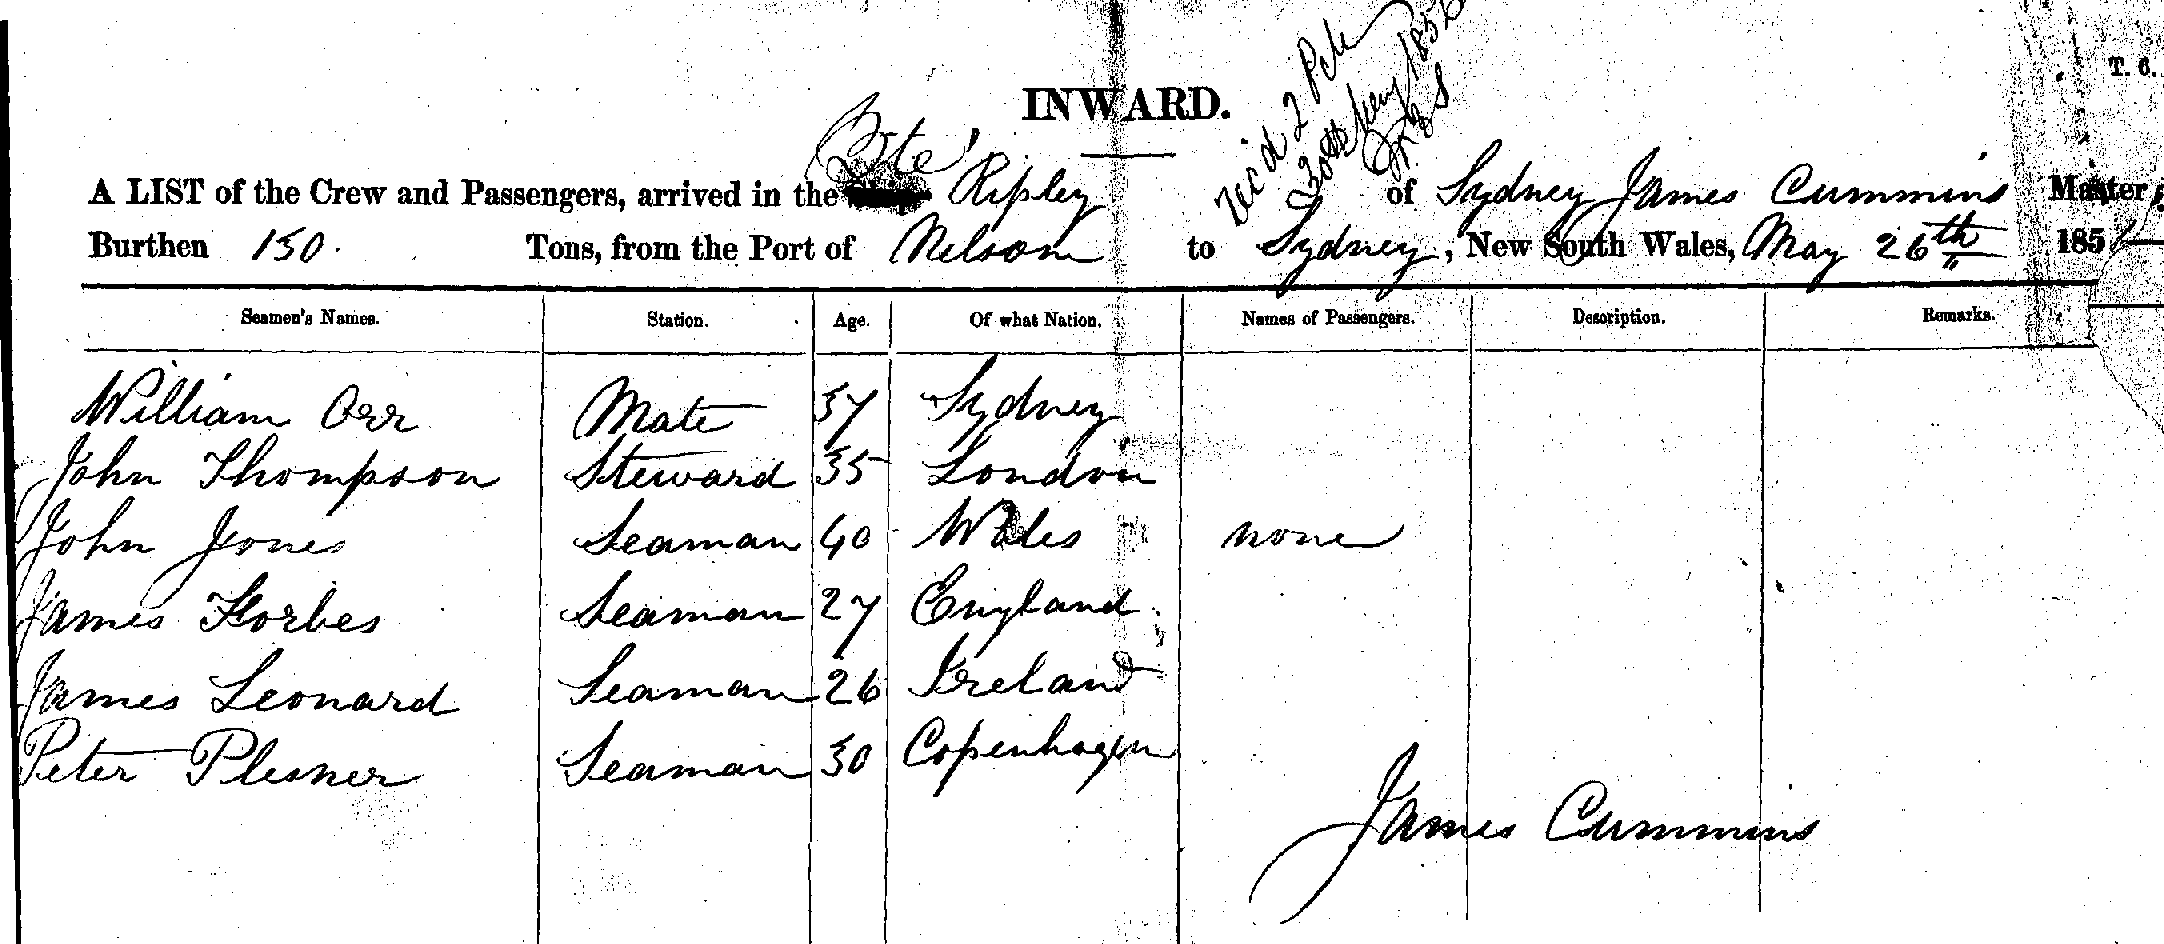 T. 6.
INWARD.
Rec'd 2 Pck
A LIST of the Crew and Passengers, arrived in the Bte' Ripley of Sydney James Cummins Master,
Burthen 150. Tons, from the Port of Nelson to Sydney, New South Wales, May 26th 185
Seamen's Names. Station. Age. Of what Nation. Names of Passengers. Description. Remarks.
William Orr Mate 37 Sydney
John Thompson Steward 35 London
John Jones Seaman 40 Wales none
James Forbes Seaman 27 England
James Leonard Seaman 26 Ireland
Peter Plesner Seaman 30 Copenhagen
James Cummins